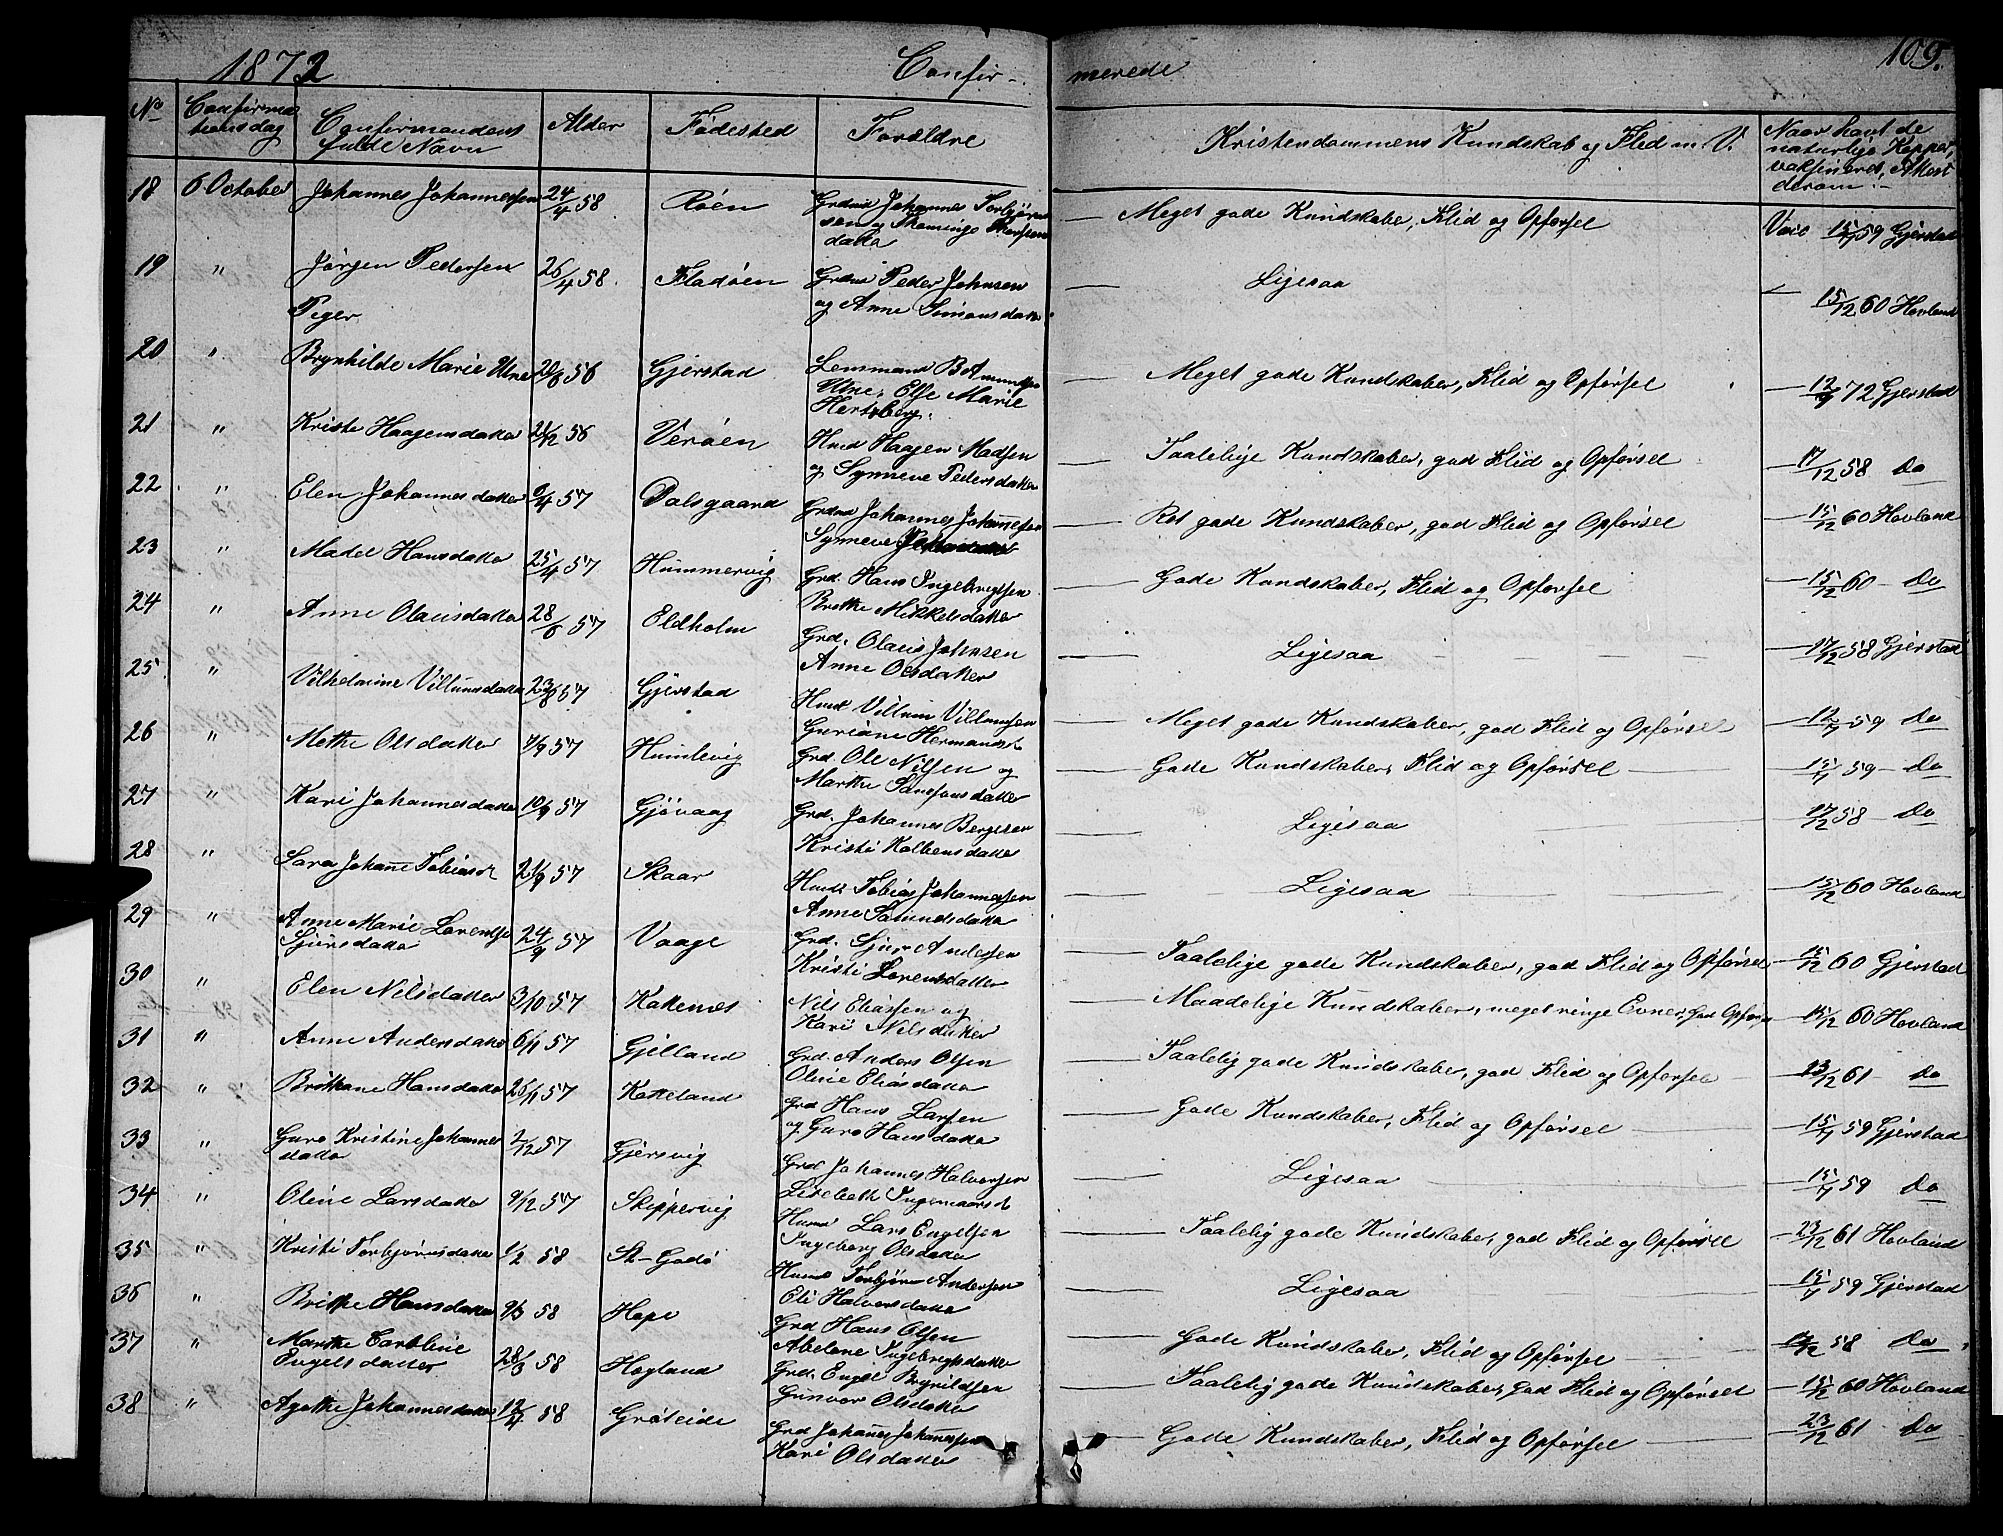 1872 Confir- merede 109.
No Confirma tionsdag Confirmandens fulde Navn Alder Fødested Forældre Kristendommens Kundskab og Flid m. V. Naar havt de naturlige Kopper, vaksineret, Attest derom
18 6 October Johannes Johannessen 24/4 58 Røen Grdmd Johannes Torbjørn sen og datter — Meget gode Kundskaber, Flid og Opførsel Vacc 15/7 59 Gjerstad
19 " Jørgen Pedersen 26/4 58. Fladøen Grdmd Peder Johnsen og Anne Simonsdatter — Ligesaa — 15/12 60 Hovland
Piger
20 " Brynhilde Marie Utne 20/8 56 Gjerstad Lensmand B Amundsen Utne, Else Marie Hertzberg. — Meget gode Kundskaber, Flid og Opførsel — 12/9 72 Gjerstad
21 " Kristi Haagensdatter 21/12 56 Verøen Hmd Haagen Madsen og Synneve Pedersdatter — Taalelige Kundskaber, god Flid og Opførsel — 17/12 58 Do
22 " Elen Johannesdatter 9/4 57 Dalsgaard Grdmd Johannes Johannessen Synneve — Ret gode Kundskaber, god Flid og Opførsel — 15/12 60 Hovland
23 " Madel Hansdatter 25/4 57 Hummervig Grd. Hans Ingebregtsen Brithe Mikkelsdatter — Gode Kundskaber, Flid og Opførsel — 15/12 60 — Do
24 " Anne Olausdatter 28/6 57 Eldholm Grd. Olaus Johnsen Anne Olsdatter — Ligesaa — 17/12 58 Gjerstad
25 " Vilhelmine Villumsdatter 23/8 57 Gjerstad Hmd Villum Villumsen Guriane Hermandsd — Meget gode Kundskaber, god Flid og Opførsel — 12/7 59 Do
26 " Methe Olsdatter 4/9 57 Humlevig Grd. Ole Nilsen og Marthe datter — Gode Kundskaber, Flid og Opførsel — 15/7 59 — Do
27 " Kari Johannesdatter 10/9 57 Gjøvaag Grd. Johannes Bergesen Kristi Kolbensdatter — Ligesaa — 17/12 58 Do
28 " Sara Johanne Tobiasd 21/9 57 Skaar Hmd. Tobias Johannessen Anne Samuelsdatter — Ligesaa — 15/12 60 Hovland
29 " Anne Marie Lorentse Sjursdatter 24/9 57 Vaage Grd. Sjur Andersen Kristi Lorensdatter — Taalelige gode Kundskaber, god Flid og Opførsel — 15/12 60 Gjerstad
30 " Elen Nilsdatter 3/10 57 Kattenes Nils Eliassen og Kari Nilsdatter — Maadelige Kundskaber, meget ringe Evner, god Opførsel — 15/12 60 Hovland
31 " Anne Andersdatter 6/11 57 Gjelland Grd. Anders Olsen Oline Eliasdatter — Taalelig gode Kundskaber, god Flid og Opførsel — 23/12 61 — Do
32 " Brithane Hansdatter 26/11 57 Katteland Grd Hans Larsen og Guro Hansdatter — Gode Kundskaber, Flid og Opførsel — 15/7 59 Gjerstad
33 " Guro Kristine Johannes datter 2/12 57 Gjersvig Grd Johannes Halvorsen Lisebeth Ingemarsd — Ligesaa — 15/7 59 Do
34 " Oline Larsdatter 9/12 57 Skippervig Hmd Lars Engelsen Ingeborg Olsdatter — Taalelig gode Kundskaber, god Flid og Opførsel — 23/12 61 Hovland
35 " Kristi Torbjørnsdatter 1/2 58 St-Godø Hmd Torbjørn Andersen Eli Halvorsdatter — Ligesaa — 15/7 59 Gjerstad
36 " Brithe Hansdatter 9/3 58 Hope Grd Hans Olsen Abelone Ingebregtsdatter — Gode Kundskaber, Flid og Opførsel — 17/12 58 Do
37 " Marthe Caroline Engelsdatter 28/3 58 Hogland Grd. Engel Brynildsen Gunvor Olsdatter — Taalelig gode Kundskaber, God Flid og Opførsel — 15/12 60 Hovland
38 " Agathe Johannesdatter 12/4 58 Grøteide Grd Johannes Johannessen Kari Olsdatter — Gode Kundskaber, Flid og Opførsel — 23/12 61 Do